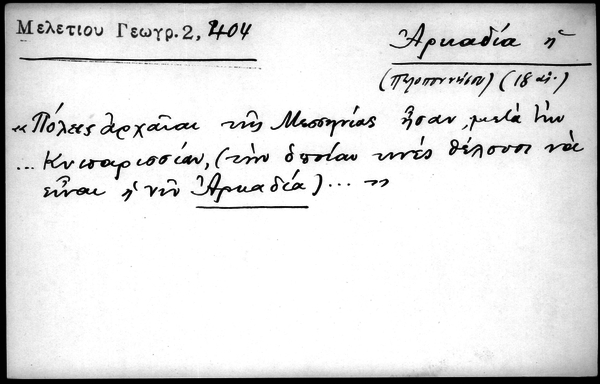 Μελετίου Γεωγρ. 2, 404
Ἀρκαδία ἡ
(Πελοποννήσου) (18 αἰ.)
« Πόλεις ἀρχαῖαι τῆς Μεσσηνίας ἦσαν, μετὰ τὴν
... Κυπαρισσίαν, (τὴν ὁποίαν τινές θέλουσι νὰ
εἶναι ἡ νῦν Ἀρκαδία) ... »